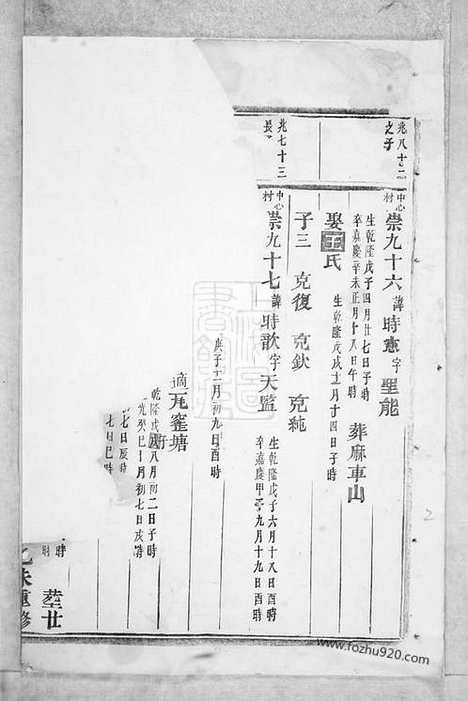 兆八十二
之子
中心
村
崇九十六 諱時憲字聖能
生乾隆戊子四月廿七日子時
卒嘉慶辛未正月十八日午時
葬麻車山
娶王氏
生乾隆戊戌十一月十四日子時
子三 克復 克欽 克純
兆七十三
長
中心
村
崇九十七 諱時歆字天監
生乾隆戊子六月十八日酉時
卒嘉慶甲子九月十九日酉時
庚子十一月初九日酉時
適瓦窰塘
乾隆戊 八月初二日子時
光癸巳十月初七日亥時
七日辰時
七日巳時
時
乙未重修
www.fozhu920.com